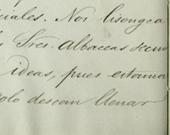 ciales. Nos lisongea
los Sres. Albaceas secun
ideas, pues estamos
solo desean llenar